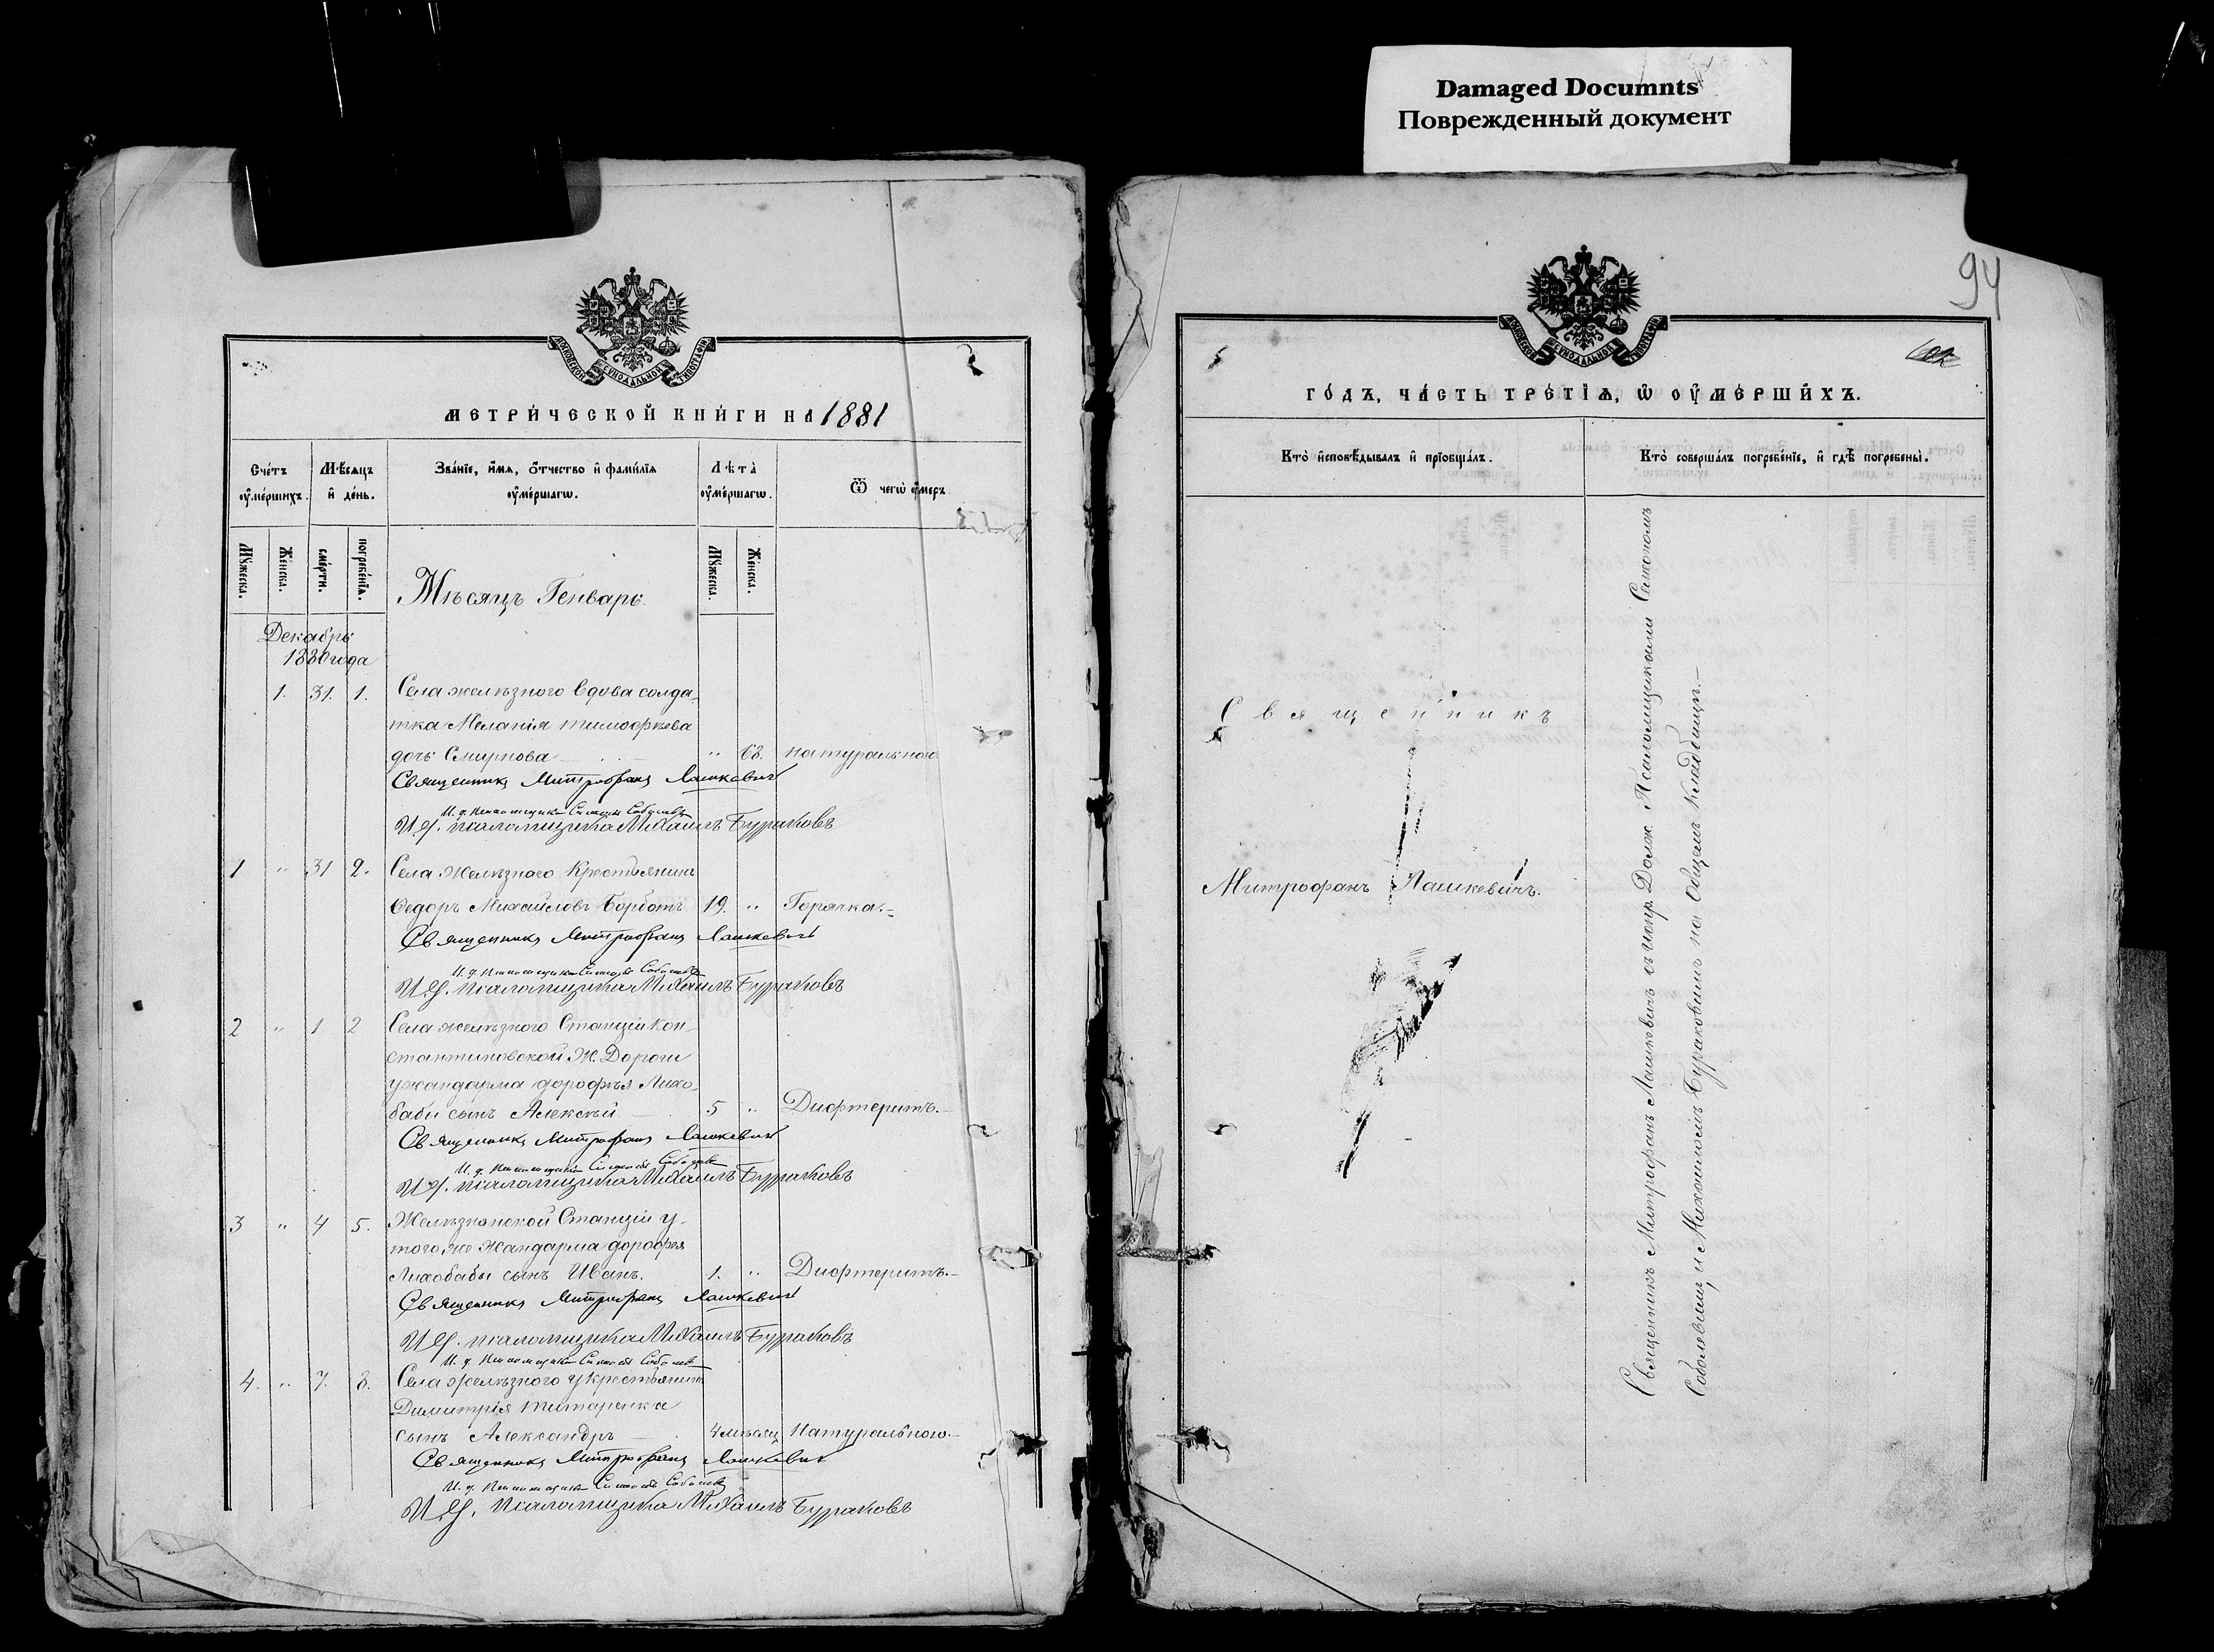 Damaged Documnts
Поврежденный документ
94
МОСКОВСКОЙ СѴНОДАЛЬНОЙ ТИПОГРАФІИ
МЕТРИЧЕСКОЙ КНИГИ НА 1881
Счетъ оумершихъ.
Мѣсяцъ и день.
Званіе, имя, отчество и фамилія оумершагѡ.
Лѣта оумершагѡ.
Ѿ чегѡ оумеръ
Мꙋжеска.
Женска.
смерти.
погребенія.
Мꙋжеска.
Женска.
Мѣсяцъ Генварь.
Декабрь
1880 года
1. 31. 1. Села желѣзного вдова солда-
тка Меланія тимофѣева
дочь Смирнова " 68. натурально
Священникъ Митрофанъ Лашкевичъ
И. д. Псаломщика Соболевъ
И. д. псаломщика Михаилъ Бураковъ
1 " 31 2. Села Желѣзного Крестьянинъ
Ѳедоръ Михайловъ 19. " Горячка.
Священникъ Митрофанъ Лашкевичъ
И. д. Псаломщика Соболевъ
И. д. псаломщика Михаилъ Бураковъ
2 " 1 2 Села желѣзного Станціи Кон-
стантиновской Ж. Дороги
у жандарма дорофѣя Лихо-
бабы сынъ Алексѣй 5 " Дифтеритъ.
Священникъ Митрофанъ Лашкевичъ
И. д. Псаломщика Соболевъ
И. д. псаломщика Михаилъ Бураковъ
3 " 4 5. Желѣзнянской Станціи у
того же Жандарма дорофея
Лихобабы сынъ Иванъ. 1. " Дифтеритъ.
Священникъ Митрофанъ Лашкевичъ
И. д. псаломщика Михаилъ Бураковъ
И. д. Псаломщика Соболевъ
4. " 7. 8. Села желѣзного у крестьянина
Димитрія титаренка
сынъ Александръ 4 мѣсяц Натурального.
Священникъ Митрофанъ Лашкевичъ
И. д. Псаломщика Соболевъ
И. д. псаломщика Михаилъ Бураковъ
МОСКОВСКОЙ СѴНОДАЛЬНОЙ ТИПОГРАФІИ
ГОДЪ, ЧАСТЬ ТРЕТІЯ, Ѡ ОУМЕРШИХЪ.
Кто исповѣдывалъ и пріобщалъ.
Кто совершалъ погребеніе, и гдѣ погребены.
Священникъ
Митрофанъ Лашкевичъ.
Священникъ Митрофанъ Лашкевичъ съ испр. Долж. Псаломщиками
Соболевымъ и Михаиломъ Бураковымъ на Общемъ Кладбищѣ.